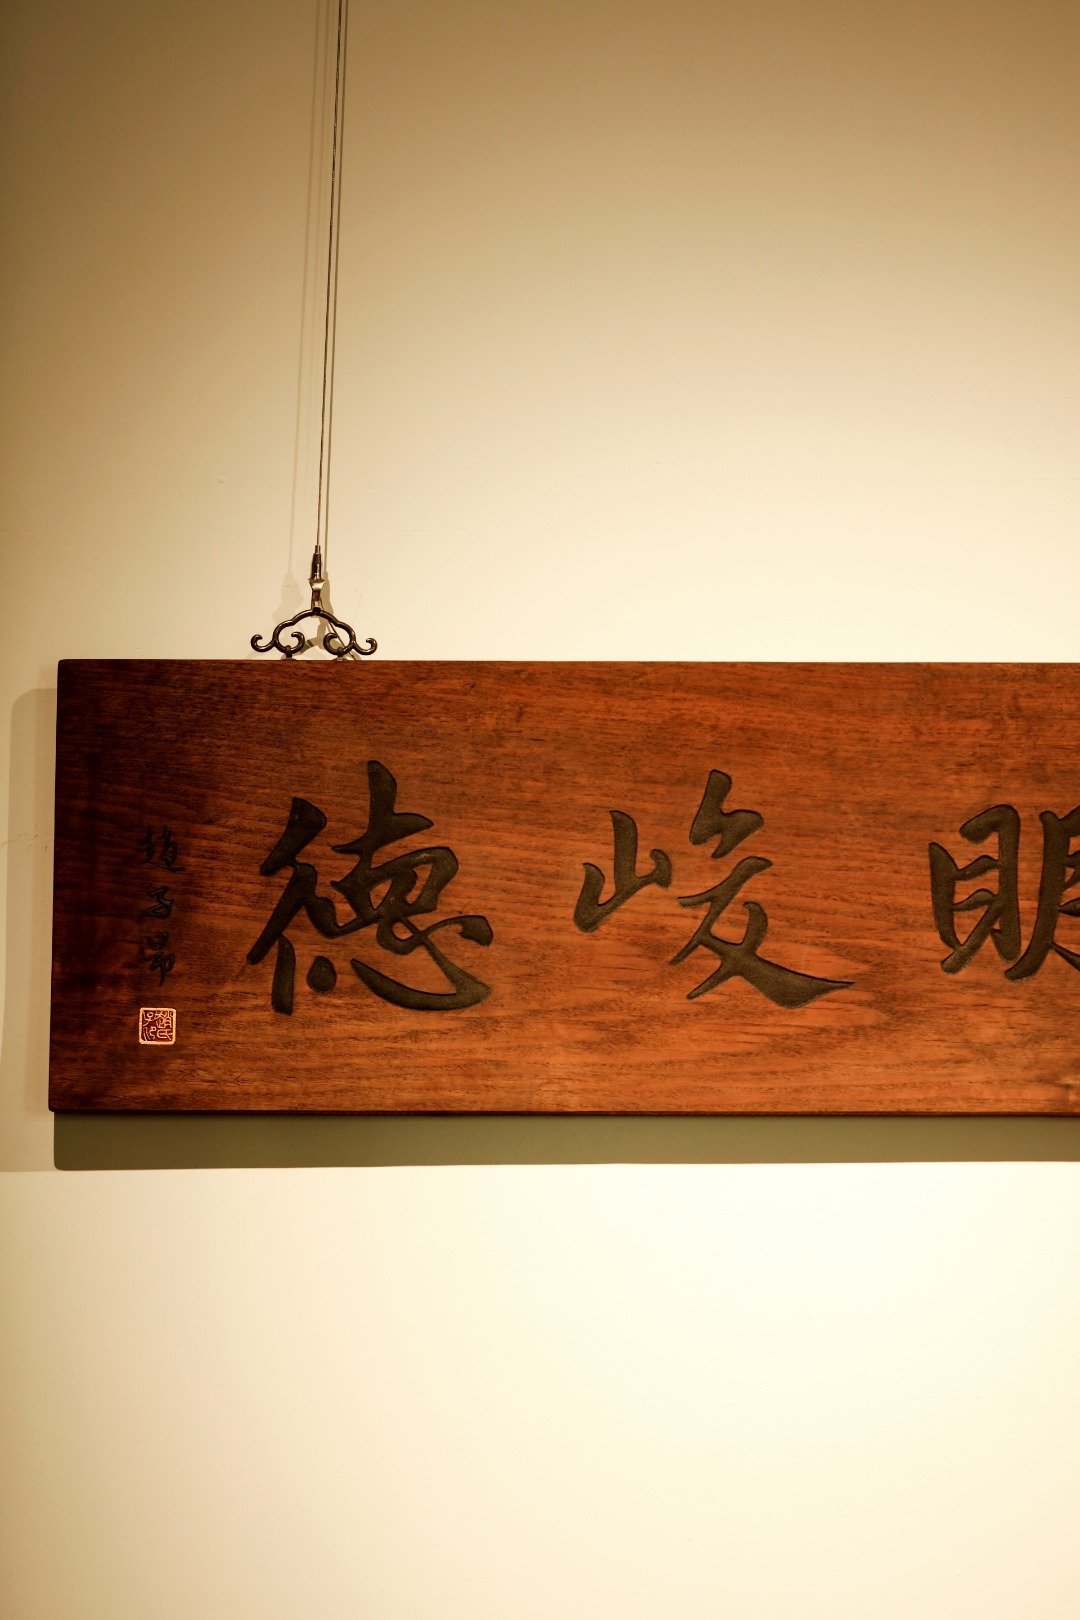 明峻德
趙子昂